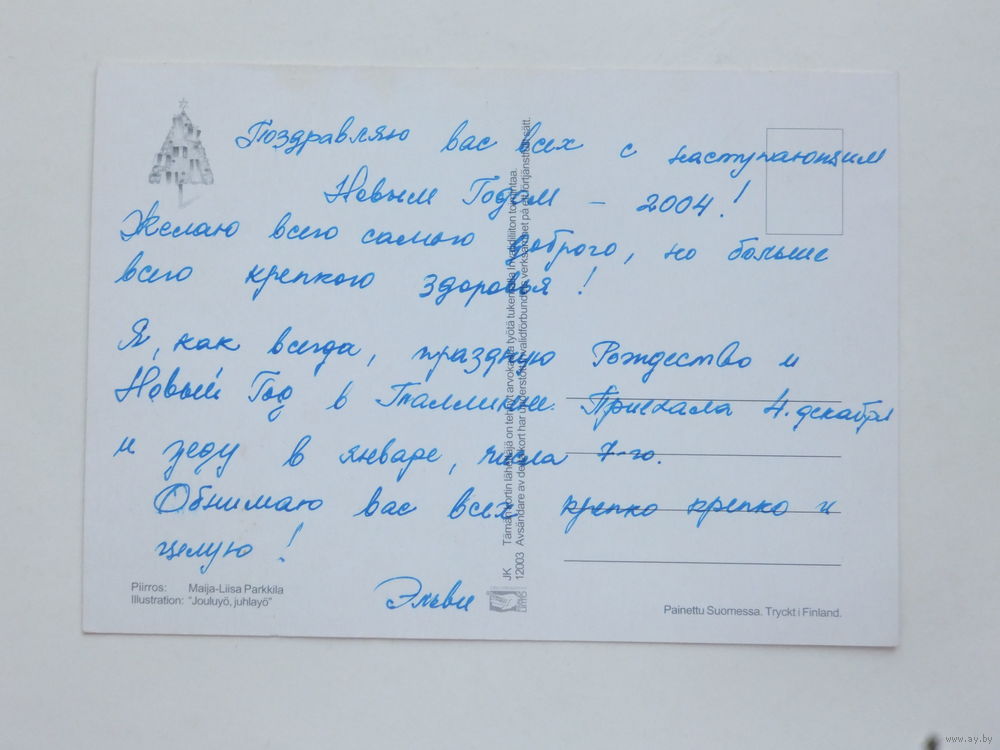 Поздравляю вас всех с наступающим
Новым Годом – 2004!
Желаю всего самого доброго, но больше
всего крепкого здоровья!
Я, как всегда, праздную Рождество и
Новый Год в Таллинне. Приехала 4. декабря
и уеду в январе, числа 7-го.
Обнимаю вас всех крепко крепко и
целую!
Эльви
Piirros: Maija-Liisa Parkkila
Illustration: "Jouluyö, juhlayö"
JK
12003
Tämän kortin lähettäjä on tehnyt arvokasta työtä tukemalla Invalidiliiton toimintaa.
Avsändare av detta kort har understött Invalidförbundets verksamhet på ett förtjänstfullt sätt.
Painettu Suomessa. Tryckt i Finland.
www.ay.by